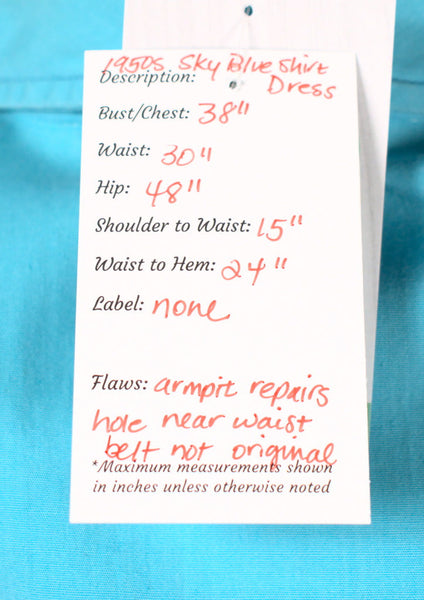 1950s Sky Blue Shirt
Description: Dress
Bust/Chest: 38"
Waist: 30"
Hip: 48"
Shoulder to Waist: 15"
Waist to Hem: 24"
Label: none
Flaws: armpit repairs
hole near waist
belt not original
*Maximum measurements shown
in inches unless otherwise noted